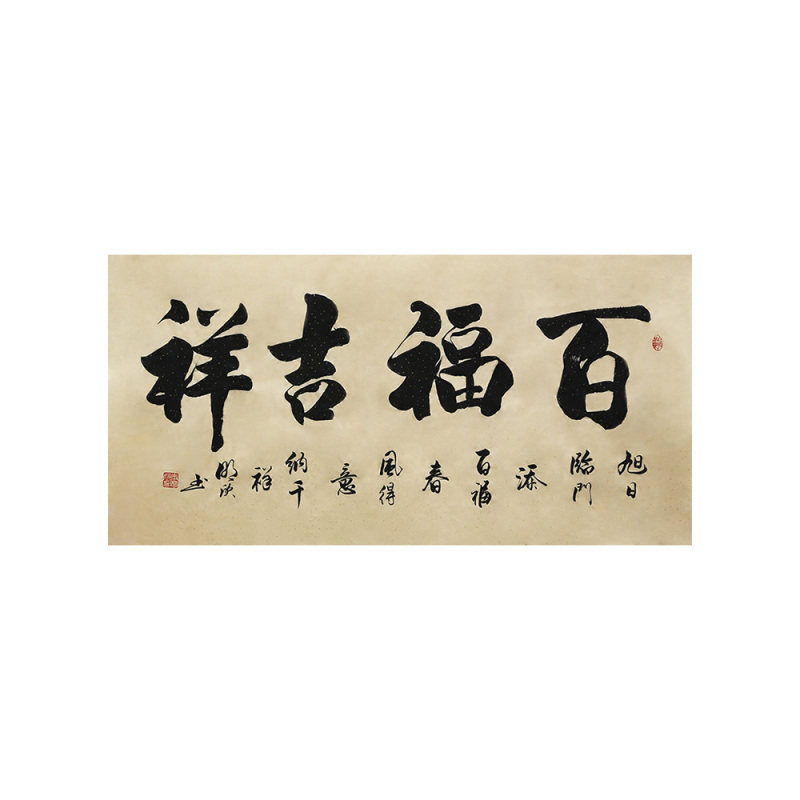 百福吉祥
旭日
臨門
添
百福
春
風得
意
納千
祥
明庆
书